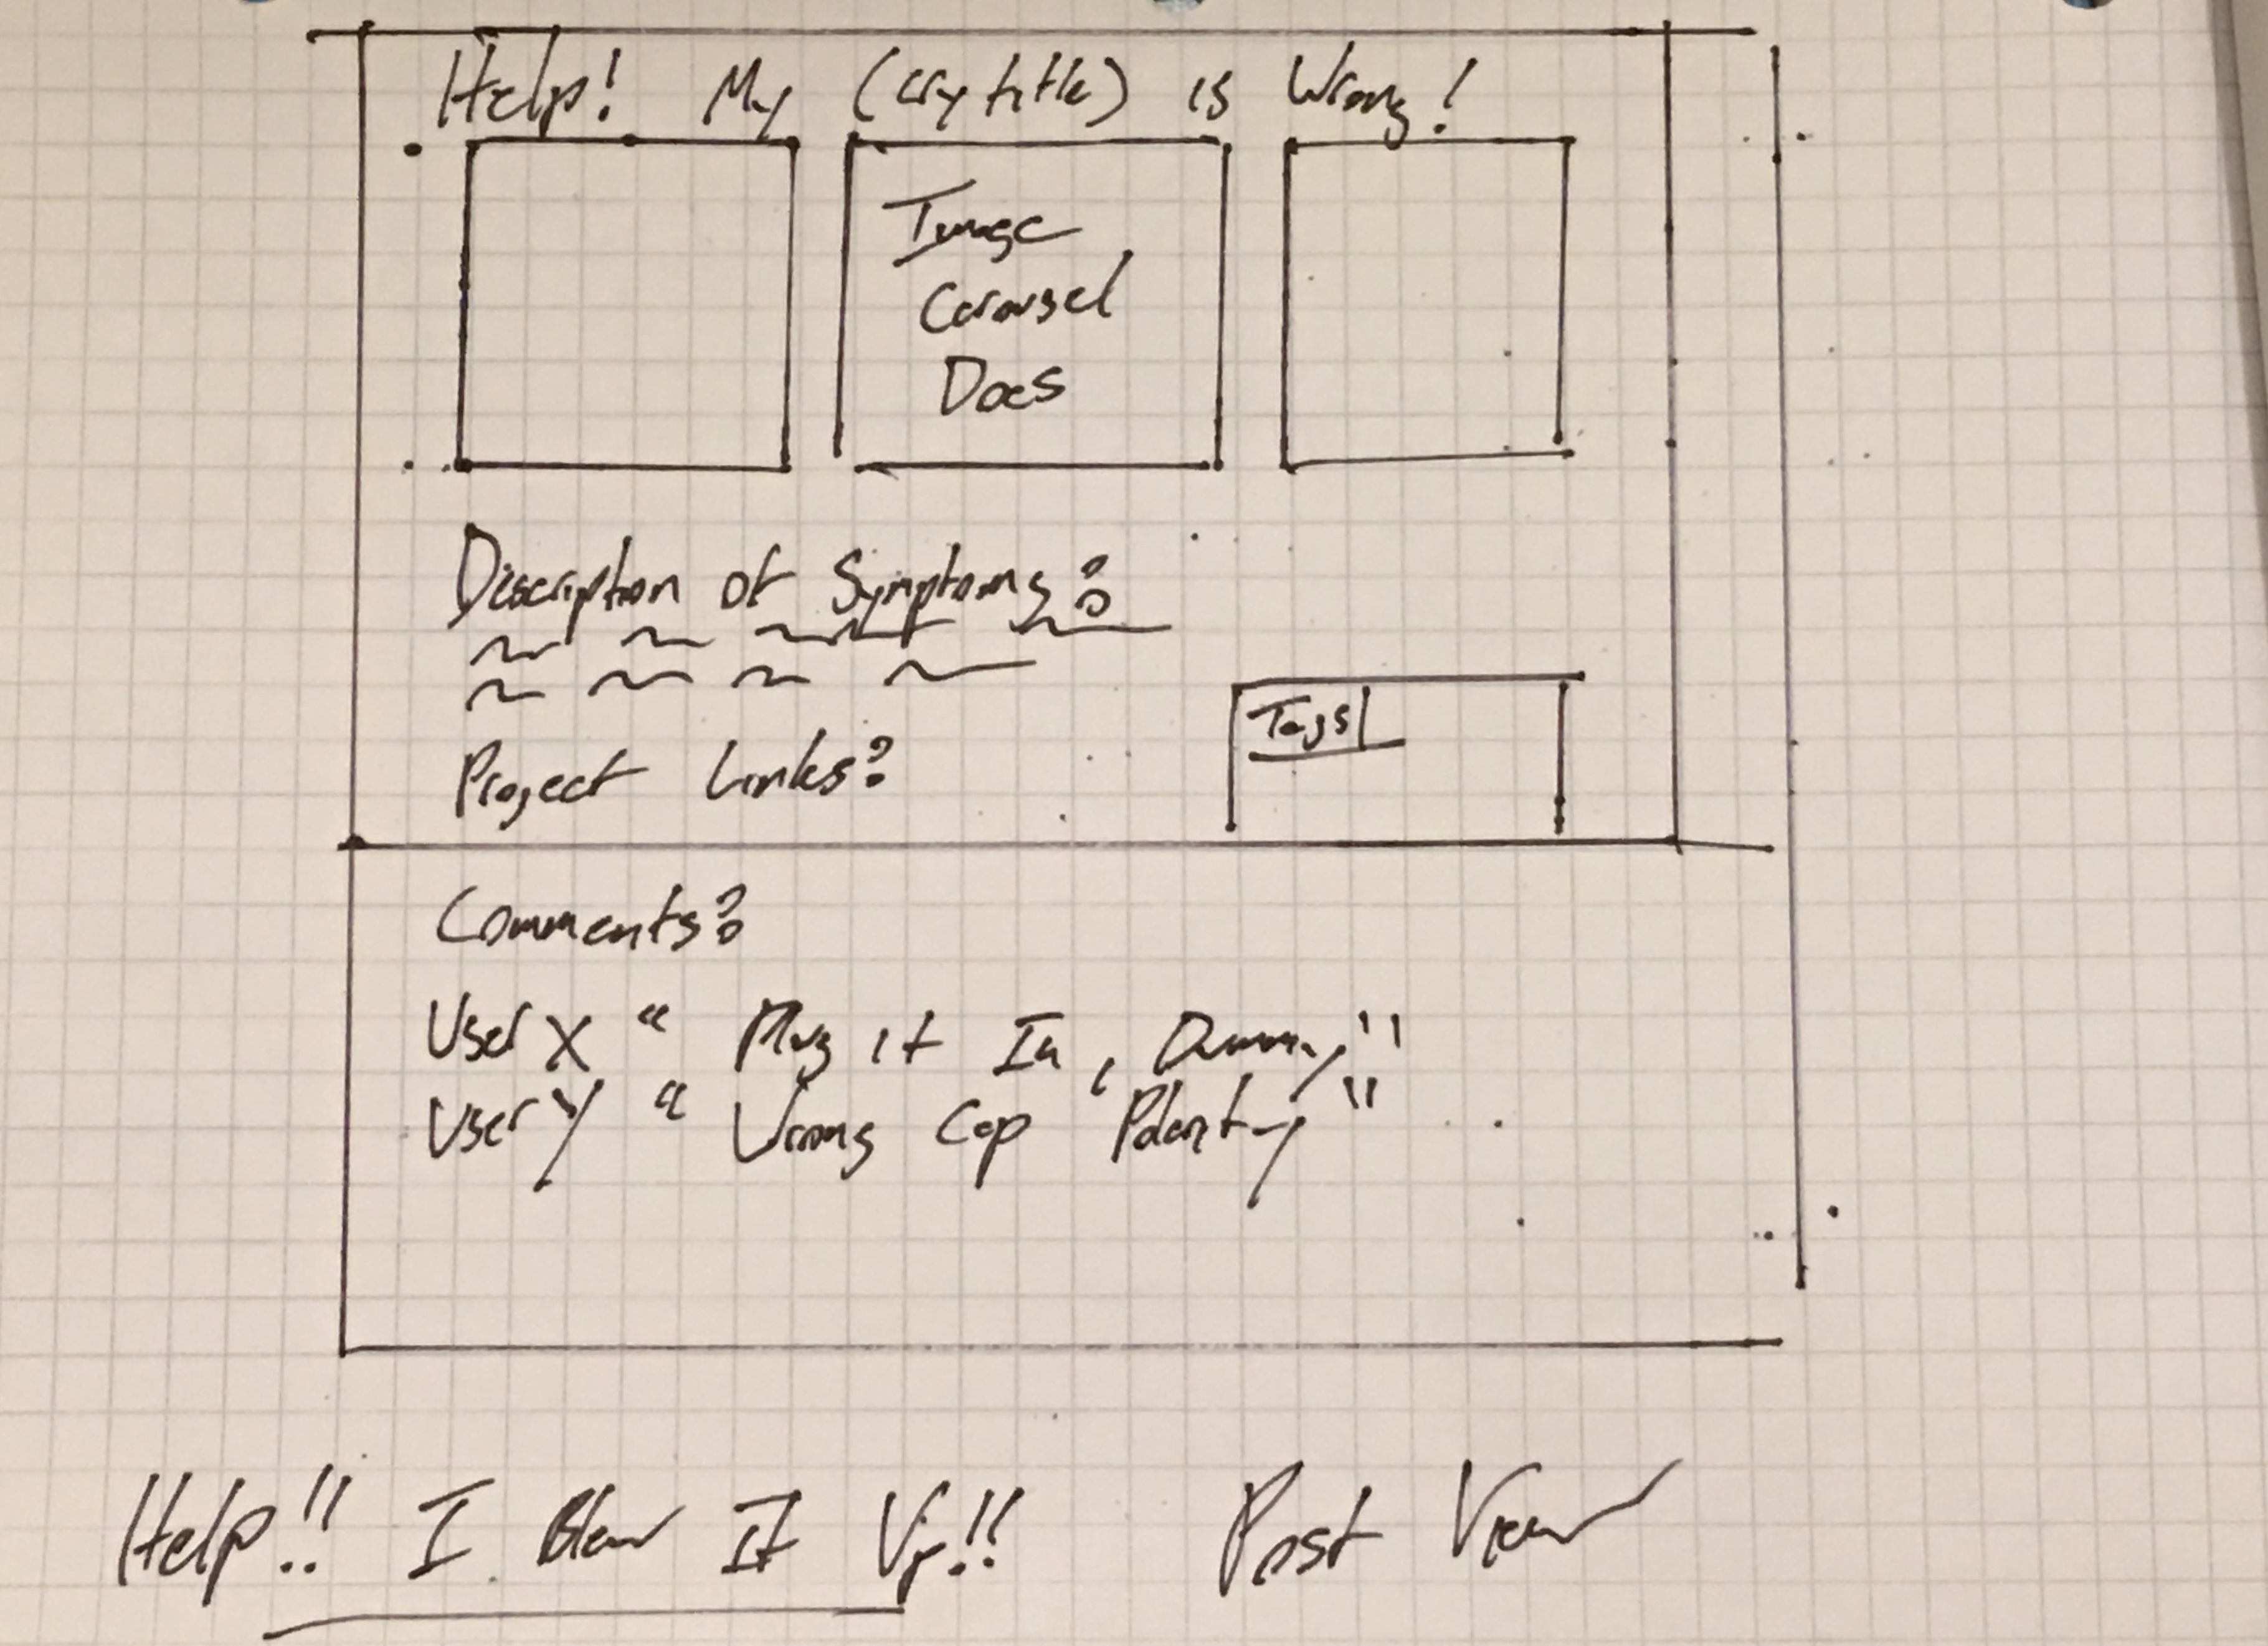 Help! My (cry title) is Wrong!
Image
Carousel
Docs
Description of Symptoms:
Tags
Project Links:
Comments:
User X " Plug it In, Dummy"
User Y " Wrong Cap Polarity"
Help!! I Blew It Up!! Post View